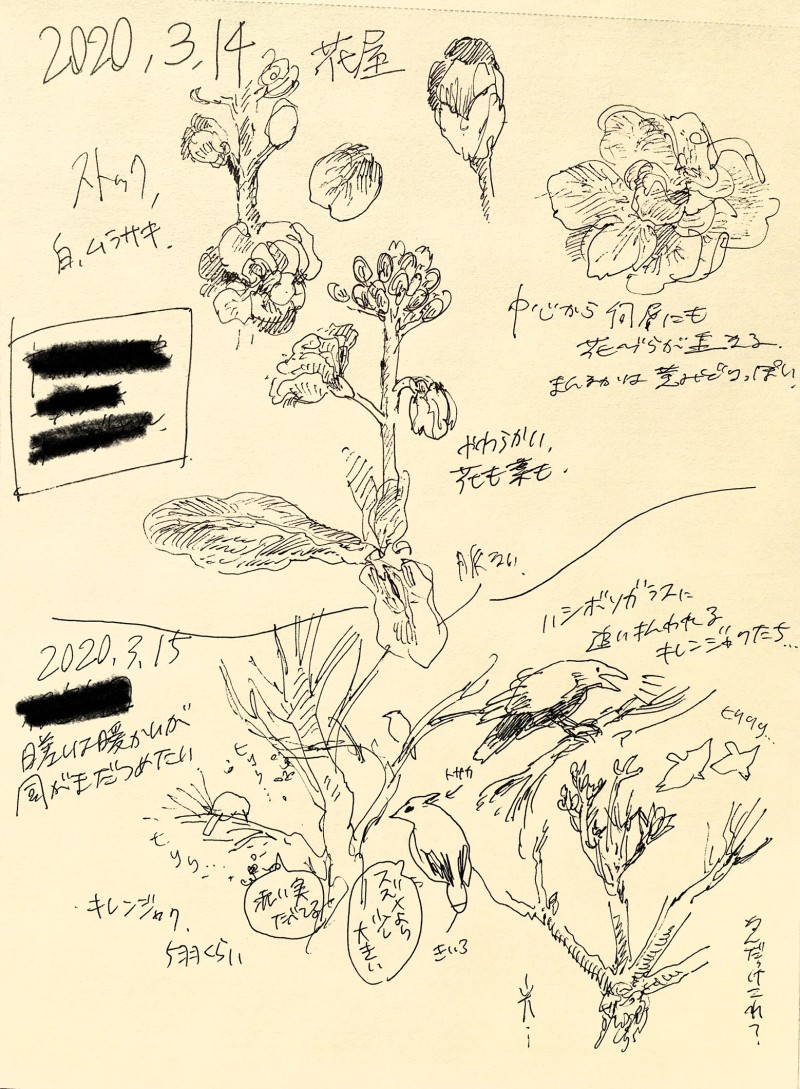 2020,3,14 花屋
ストック,
白、ムラサキ.
中心から 何層にも
花びらが重なる.
まんなかは 黄みどりっぽい.
やわらかい,
花も葉も.
2020,3,15
日差しは暖かいが
風がまだつめたい
ハシボソガラスに
追いはらわれる
キレンジャクたち…
ヒリリリ…
トサカ
ヒリリ…
ヒリリ…
赤い実
たべてる
スズメより
少し
大きい
きいろ
キレンジャク.
5羽くらい
なんだっけこれ?